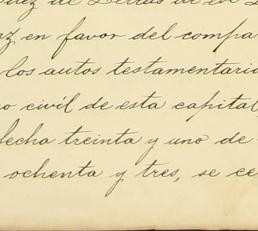 de Letras de
en favor del compa
los autos testamentari
o civíl de esta capital,
fecha treinta y uno de
ochenta y tres, se ce